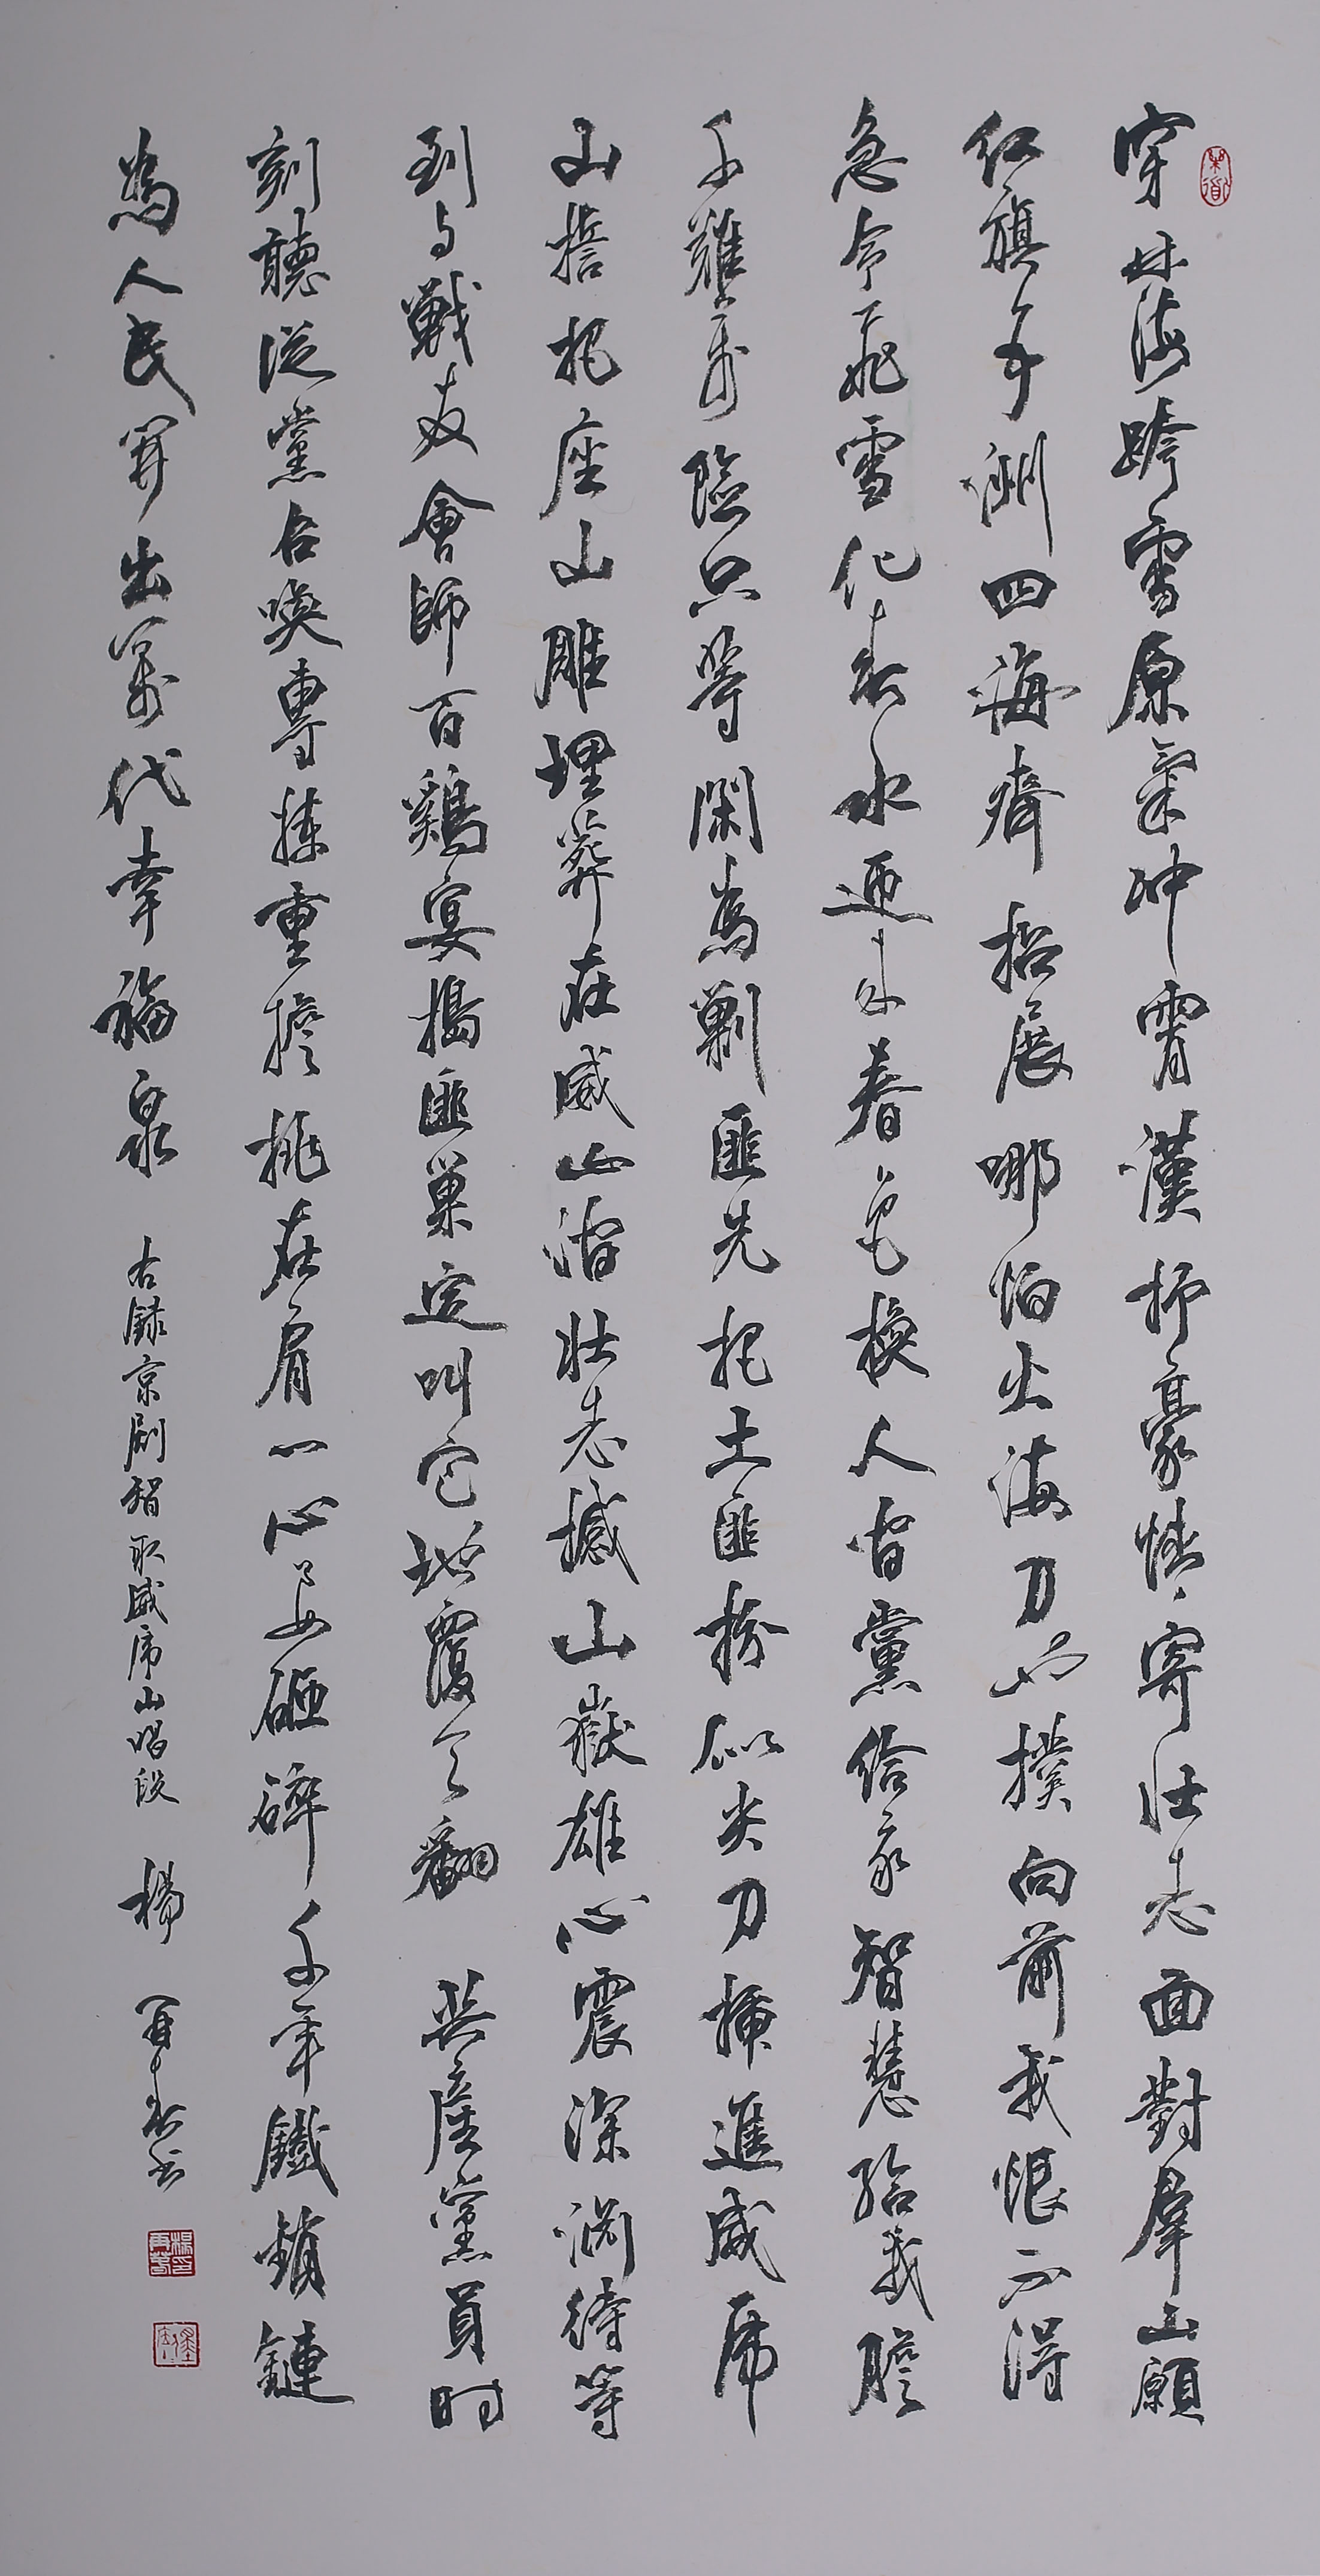 穿林海跨雪原氣冲霄漢抒豪情寄壯志面對羣山願
紅旗五洲四海齊招展哪怕火海刀山撲向前我恨不得
急令飛雪化春水迎來春色換人間黨給我智慧給我膽
千難萬險只等閑為剿匪先把土匪扮似尖刀插進威虎
山誓把座山雕埋葬在威山澗壯志撼山嶽雄心震深淵待等
到與戰友會師百鷄宴搗匪巢定叫它地覆天翻 共産黨員時
刻聽從黨召喚專揀重擔挑在肩一心要砸碎千年鐵鎖鏈
為人民開出萬代幸福泉 右錄京劇智取威虎山唱段 楊再春书
楊再春印